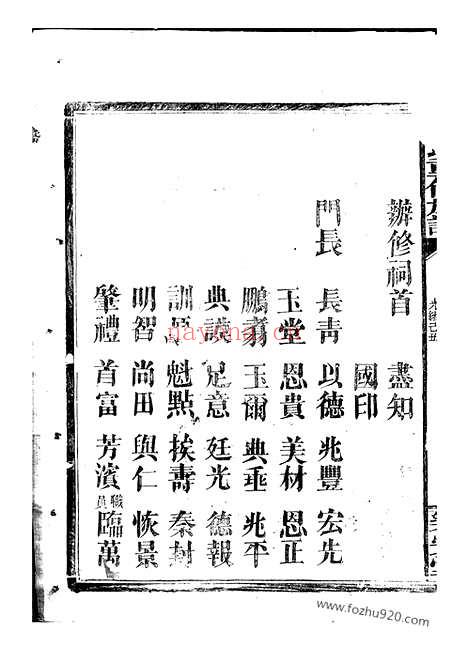 辦修祠首 盡知
國印
門長 長青 以德 兆豐 宏先
玉堂 恩貴 美材 恩正
鵬翥 玉爾 典垂 兆平
典謨 足意 廷光 德報
訓 魁點 挨壽 秦封
明智 尚田 與仁 恢景
肇禮 首富 芳濱 職員 臨萬
nayona.cn
www.fozhu920.com